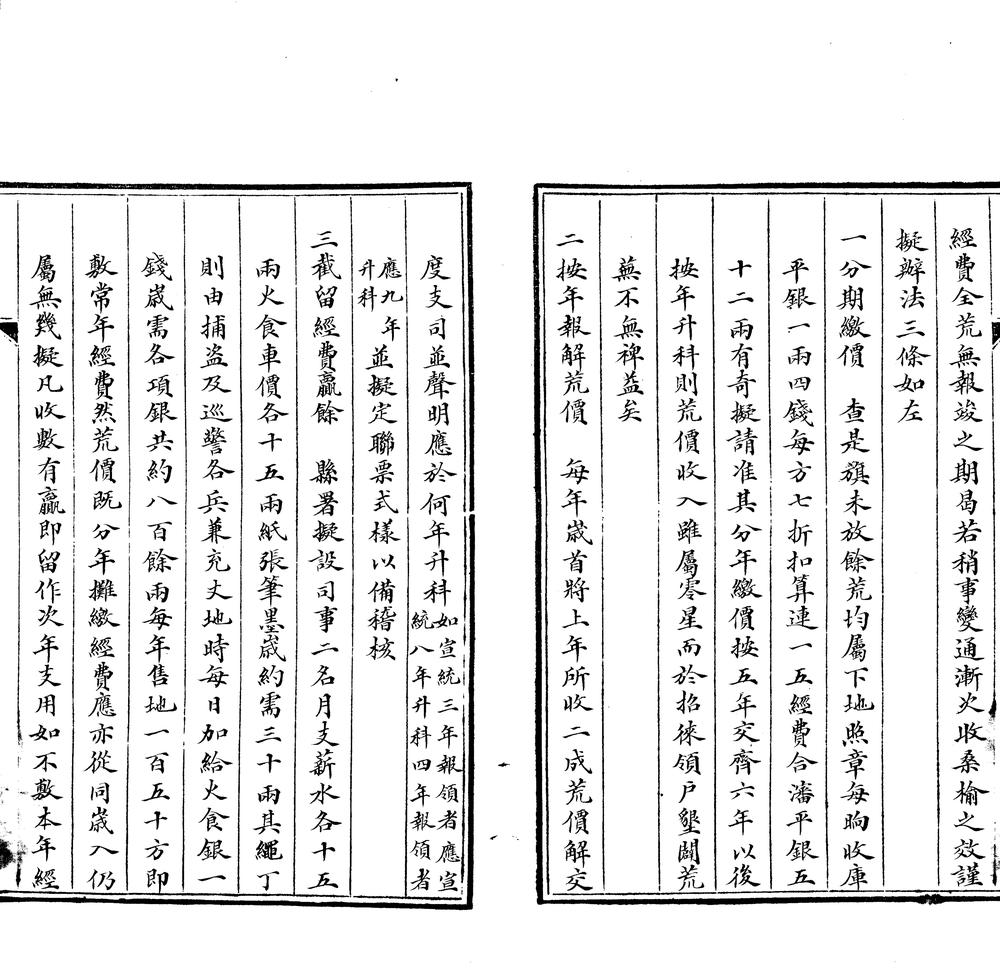 經費全荒無報竣之期曷若稍事變通漸次收桑榆之效謹
擬辦法三條如左
一分期繳價　查是旗未放餘荒均屬下地照章每晌收庫
平銀一兩四錢每方七折扣算連一五經費合瀋平銀五
十二兩有奇擬請准其分年繳價按五年交齊六年以後
按年升科則荒價收入雖屬零星而於招徠領户墾闢荒
蕪不無裨益矣
二按年報解荒價　每年歲首將上年所收二成荒價解交
度支司並聲明應於何年升科如宣統三年報領者應宣
統八年升科四年報領者
應九年
升科
並擬定聯票式樣以備稽核
三截留經費贏餘　縣署擬設司事二名月支薪水各十五
兩火食車價各十五兩紙張筆墨歲約需三十兩其繩丁
則由捕盜及巡警各兵兼充丈地時每日加給火食銀一
錢歲需各項銀共約八百餘兩每年售地一百五十方即
敷常年經費然荒價既分年攤繳經費應亦從同歲入仍
屬無幾擬凡收數有贏即留作次年支用如不敷本年經